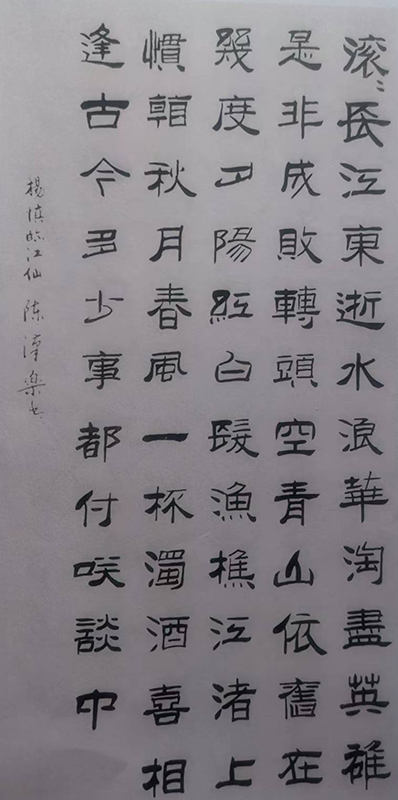 滚〻長江東逝水浪華淘盡英雄
是非成敗轉頭空青山依舊在
幾度夕陽紅白髮漁樵江渚上
慣看秋月春風一杯濁酒喜相
逢古今多少事都付咲談中
楊慎临江仙 陈